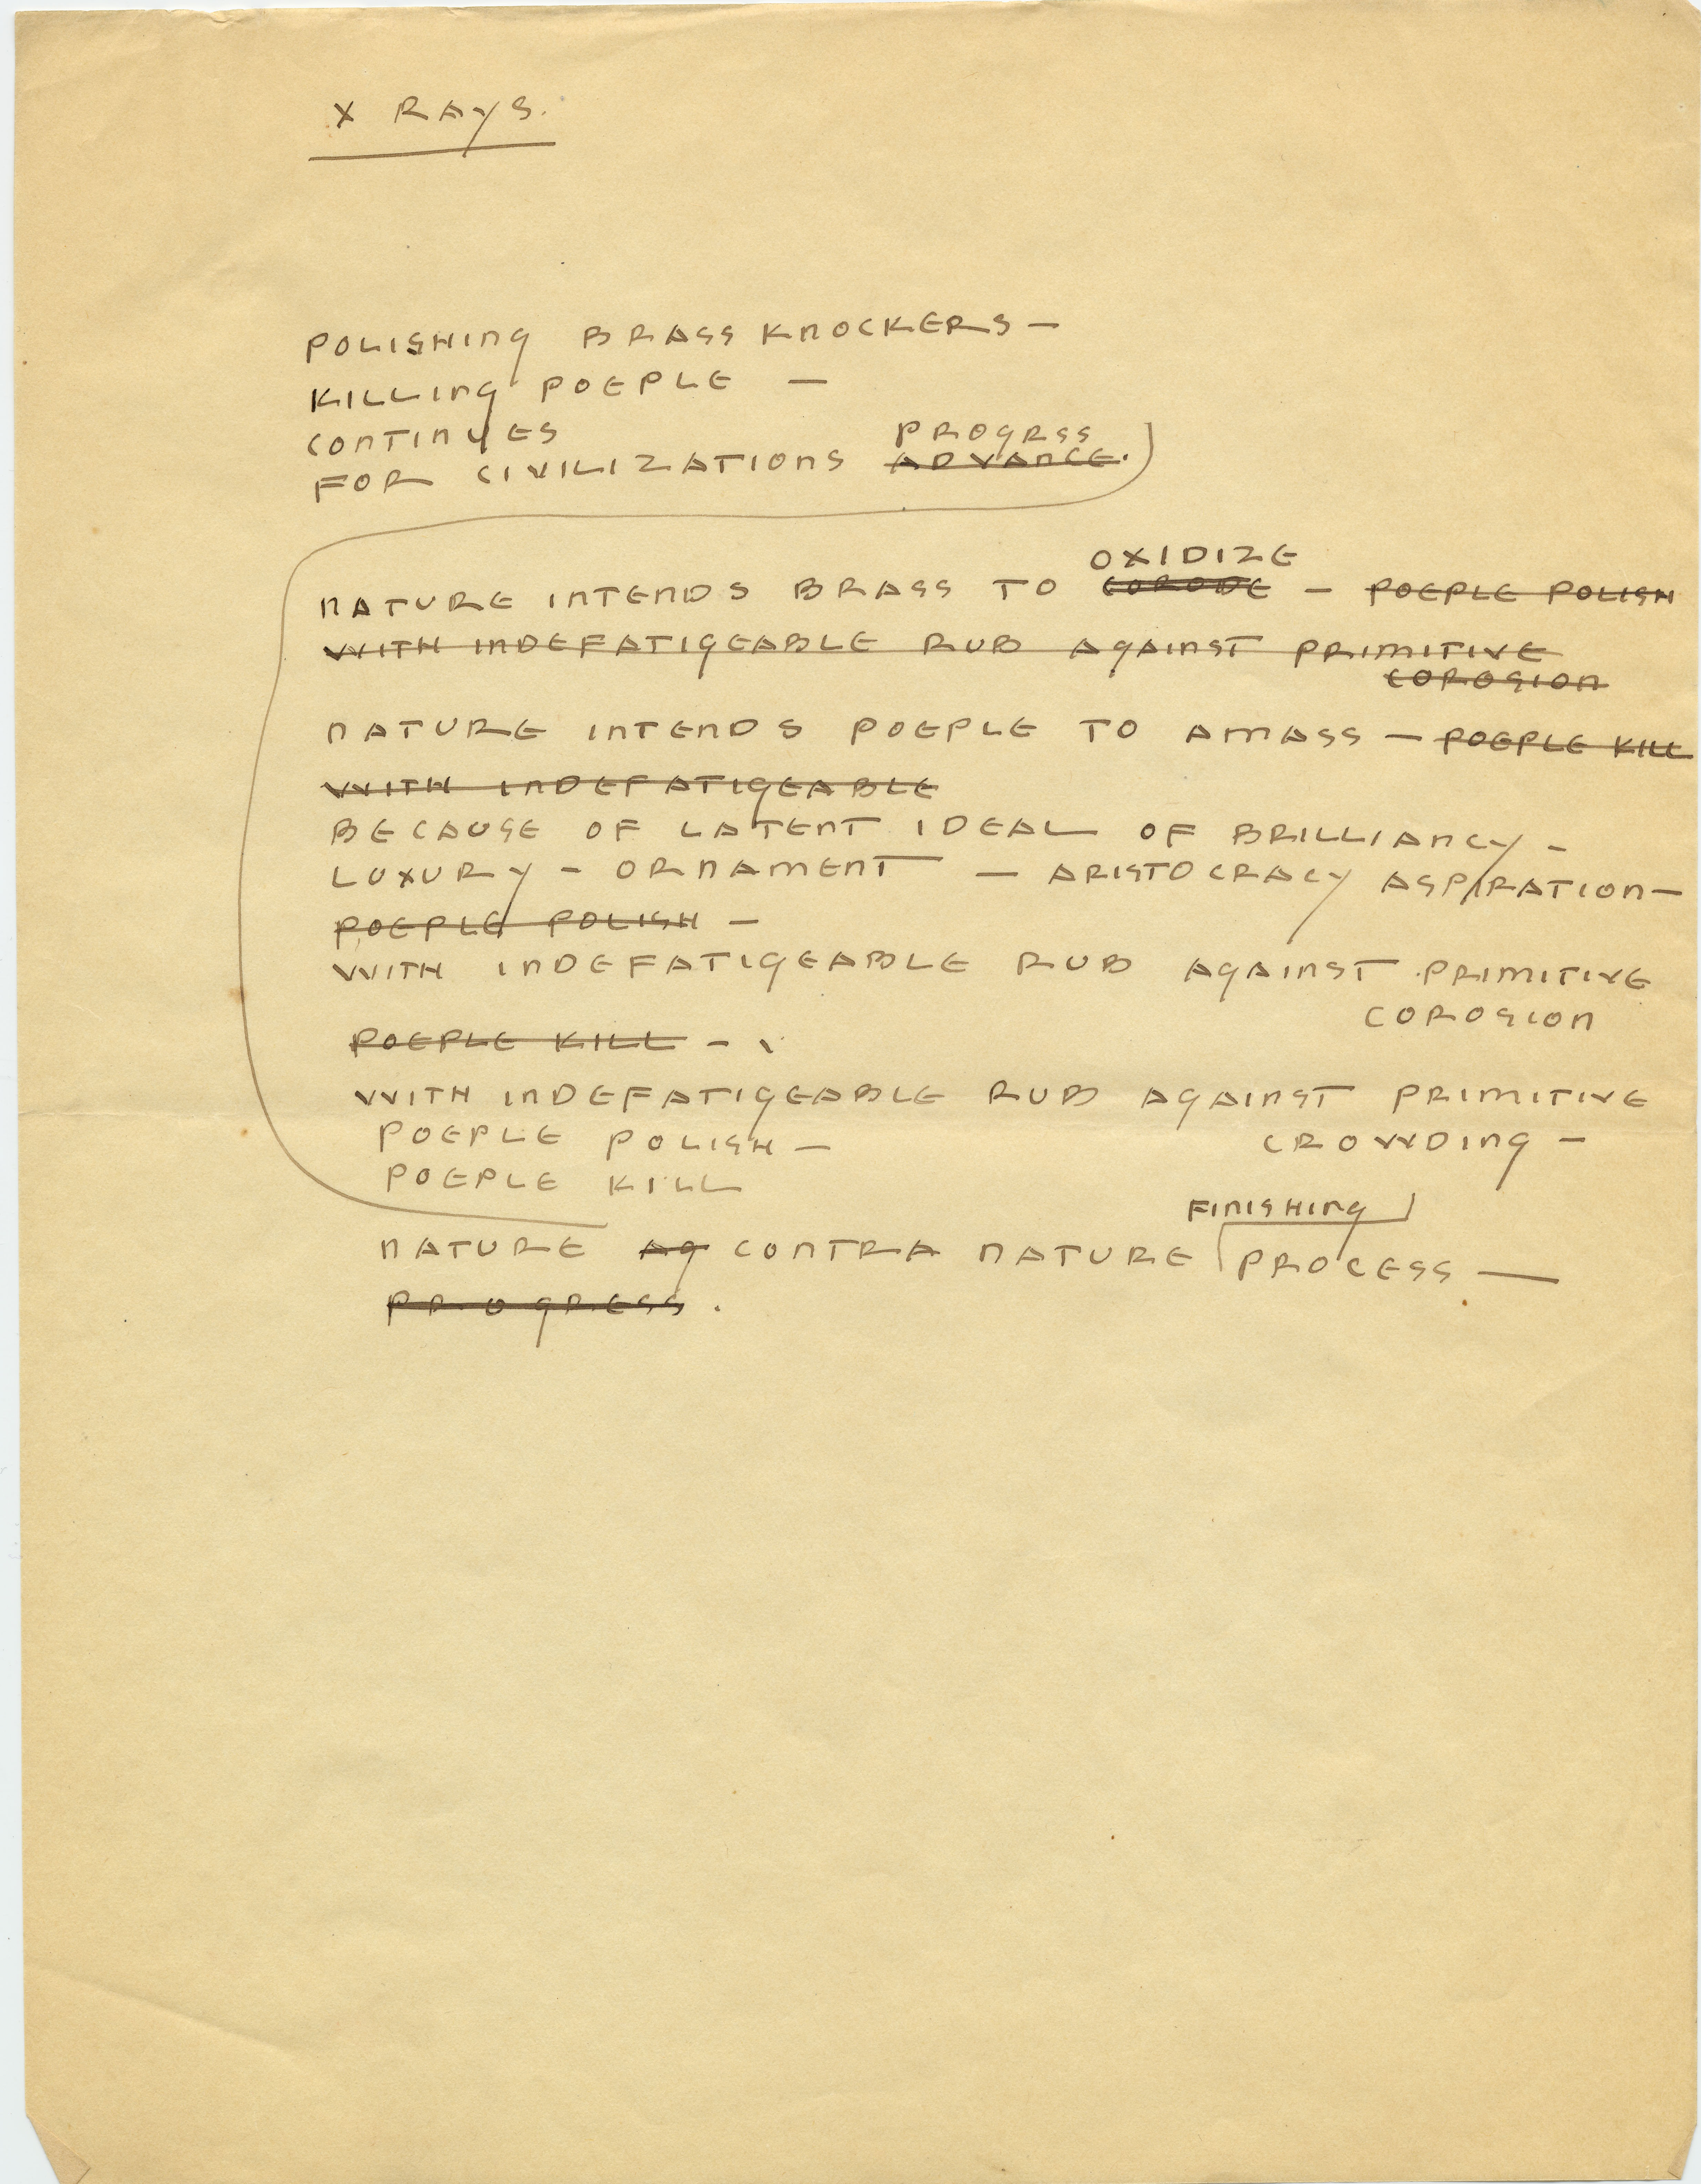 X RAYS.
POLISHING BRASS KNOCKERS —
KILLING POEPLE —
CONTINUES
PROGRSS
FOR CIVILIZATIONS ADVANCE.
OXIDIZE
NATURE INTENDS BRASS TO CORODE — POEPLE POLISH
WITH INDEFATIGEABLE RUB AGAINST PRIMITIVE
COROSION
NATURE INTENDS POEPLE TO AMASS — POEPLE KILL
WITH INDEFATIGEABLE
BECAUSE OF LATENT IDEAL OF BRILLIANCY –
LUXURY – ORNAMENT — ARISTOCRACY ASPIRATION —
POEPLE POLISH —
WITH INDEFATIGEABLE RUB AGAINST PRIMITIVE
COROSION
POEPLE KILL –
WITH INDEFATIGEABLE RUB AGAINST PRIMITIVE
CROWDING –
POEPLE POLISH —
POEPLE KILL
FINISHING
NATURE AG CONTRA NATURE PROCESS —
PROGRESS.